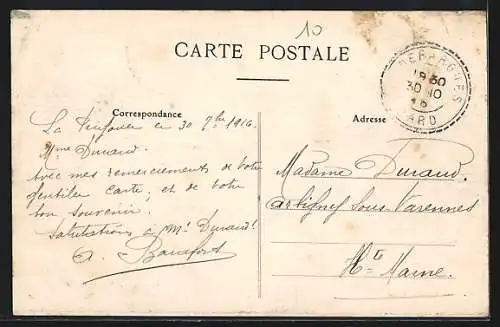 10
CARTE POSTALE
Correspondance
Adresse
18 30
30 10
16
ARD
La en 30 1916.
Mme Durand.
avec mes remerciements de votre
gentille carte, et de votre
bon souvenir.
Salutations à Mr Durand.
a.
Madame Durand.
Sous-Varennes
Hte Marne.